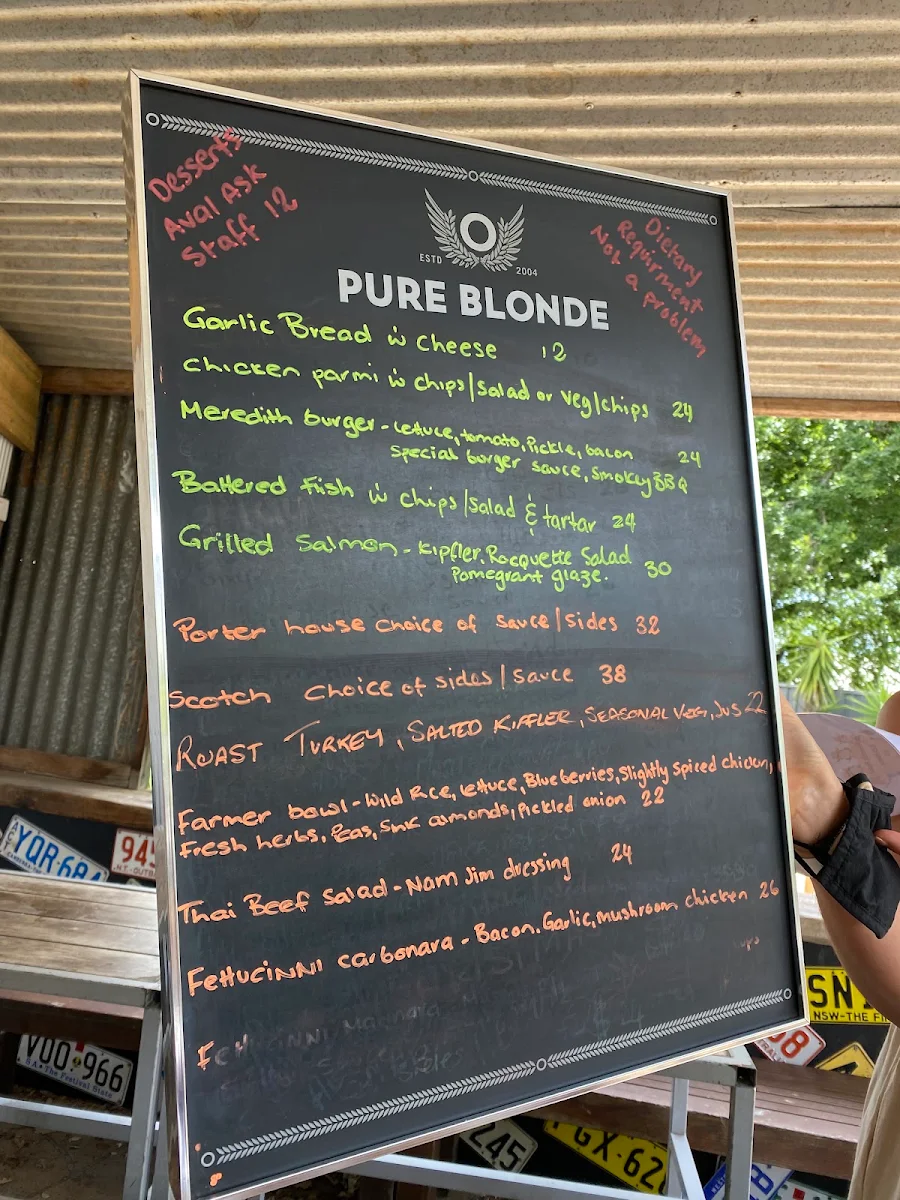 Desserts
Aval Ask
Staff 12
Dietary
Requirment
Not a problem
ESTD 2004
PURE BLONDE
Garlic Bread w cheese 12
Chicken parmi w chips/salad or veg/chips 24
Meredith burger - lettuce, tomato, pickle, bacon 24
special burger sauce, smokey BBQ
Battered fish w chips/salad & tartar 24
Grilled Salmon - kipfler, Rocquette Salad
Pomegrant glaze. 30
Porter house choice of sauce/sides 32
Scotch choice of sides/sauce 38
ROAST TURKEY, SALTED KIFFLER, SEASONAL VEG, JUS 22
Farmer bowl - Wild Rce, lettuce, Blueberries, slightly spiced chicken,
fresh herbs, Peas, almonds, pickled onion 22
Thai Beef Salad - Nam Jim dressing 24
Fettucinni carbonara - Bacon. Garlic, mushroom chicken 26
YQR·684
945
VOO·966
SN
NSW-THE FI
245
GX·62